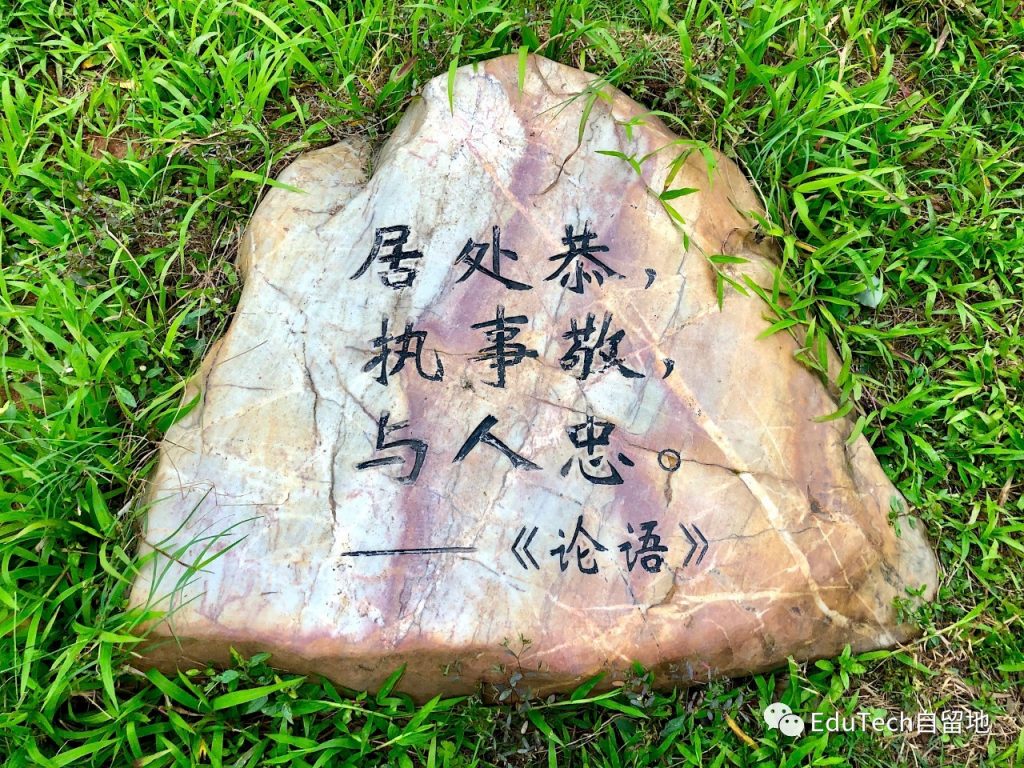 居处恭，
执事敬，
与人忠。
——《论语》
EduTech自留地